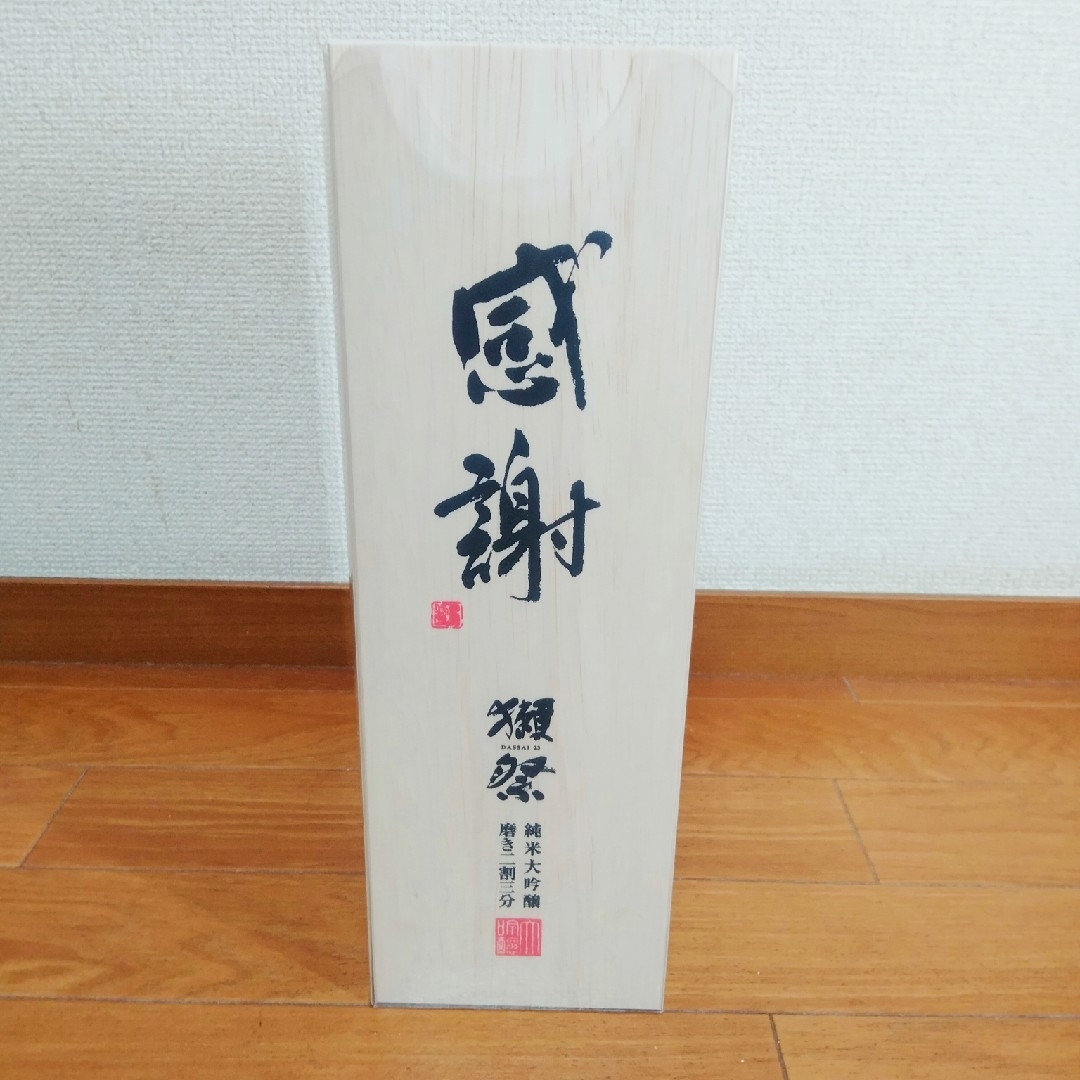 感謝
獺祭
DASSAI 23
純米大吟醸
磨き二割三分